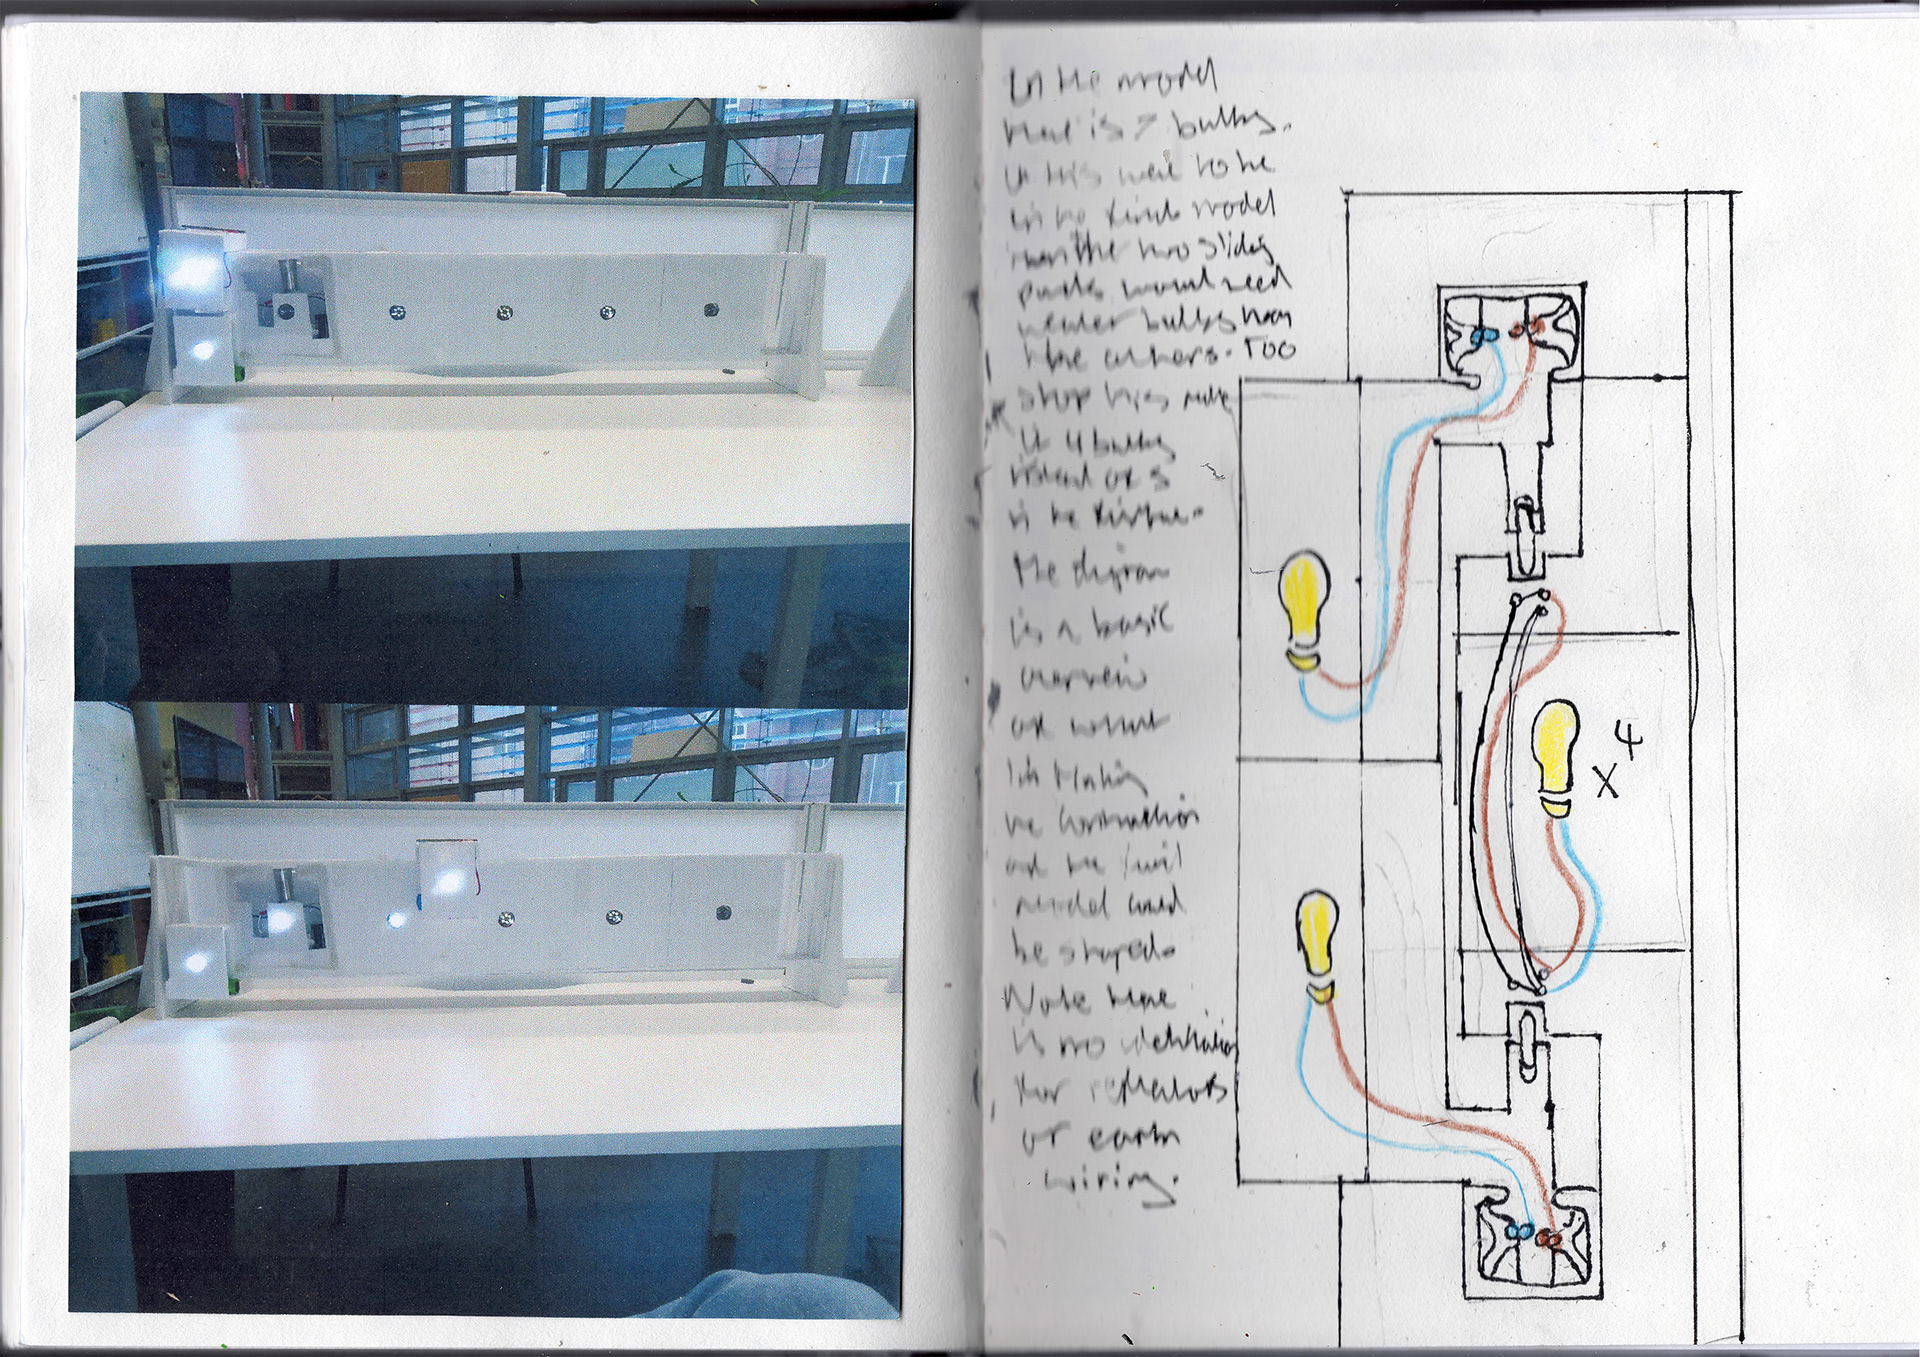 In the model
there is 7 bulbs.
If this were to be
in the final model
then the two sliding
parts would need
weaker bulbs than
the others. Too
stop this make
it 4 bulbs
instead of 5
in the
The digram
is a basic
overveiw
of what
I'm making
the construction
of the final
model could
be shaped.
Note there
is no
for reflectors
or earth
wiring.
x 4